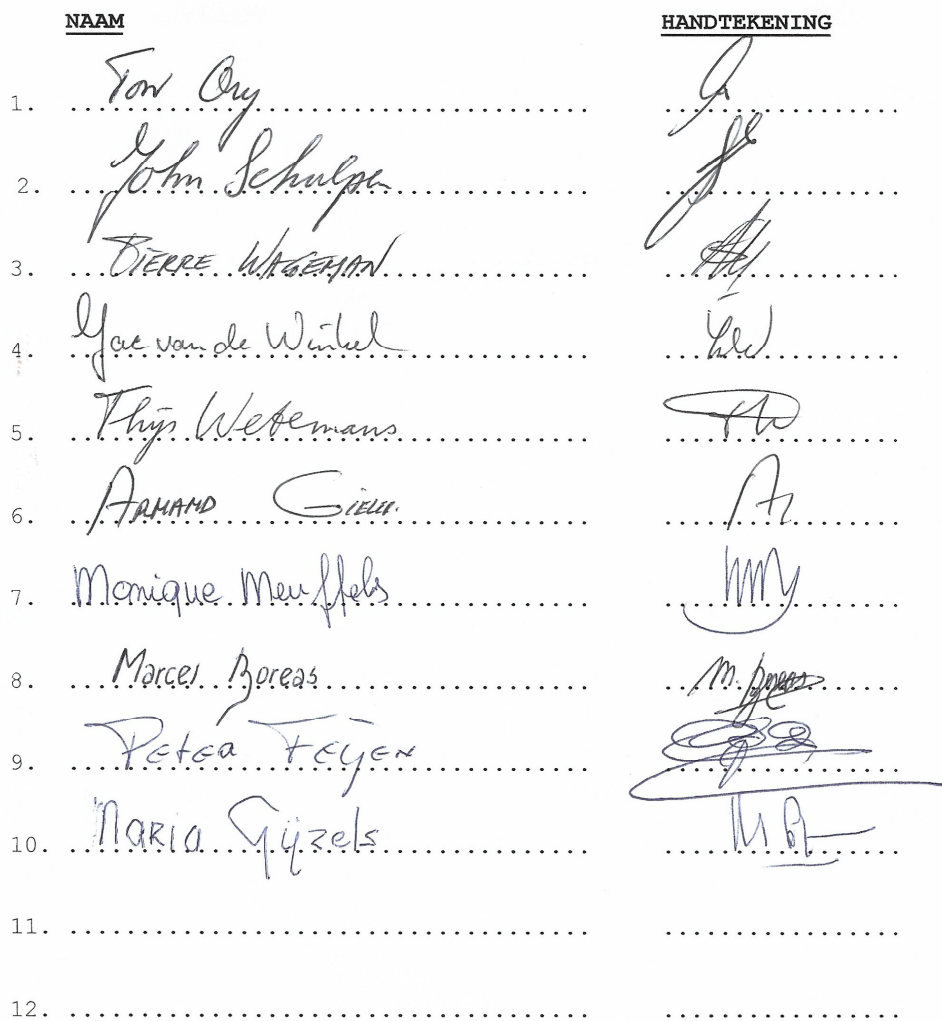 NAAM HANDTEKENING
1. Ton Ory
2. John Schulpen
3. PIERRE WAGEMAN
4. Jac van de Winkel
5. Thijs Wetemans
6. ARMAND
7. Monique Meuffels
8. Marcel Boreas M. Boreas
9. Peter Feyen
10. Maria Gijzels
11.
12.